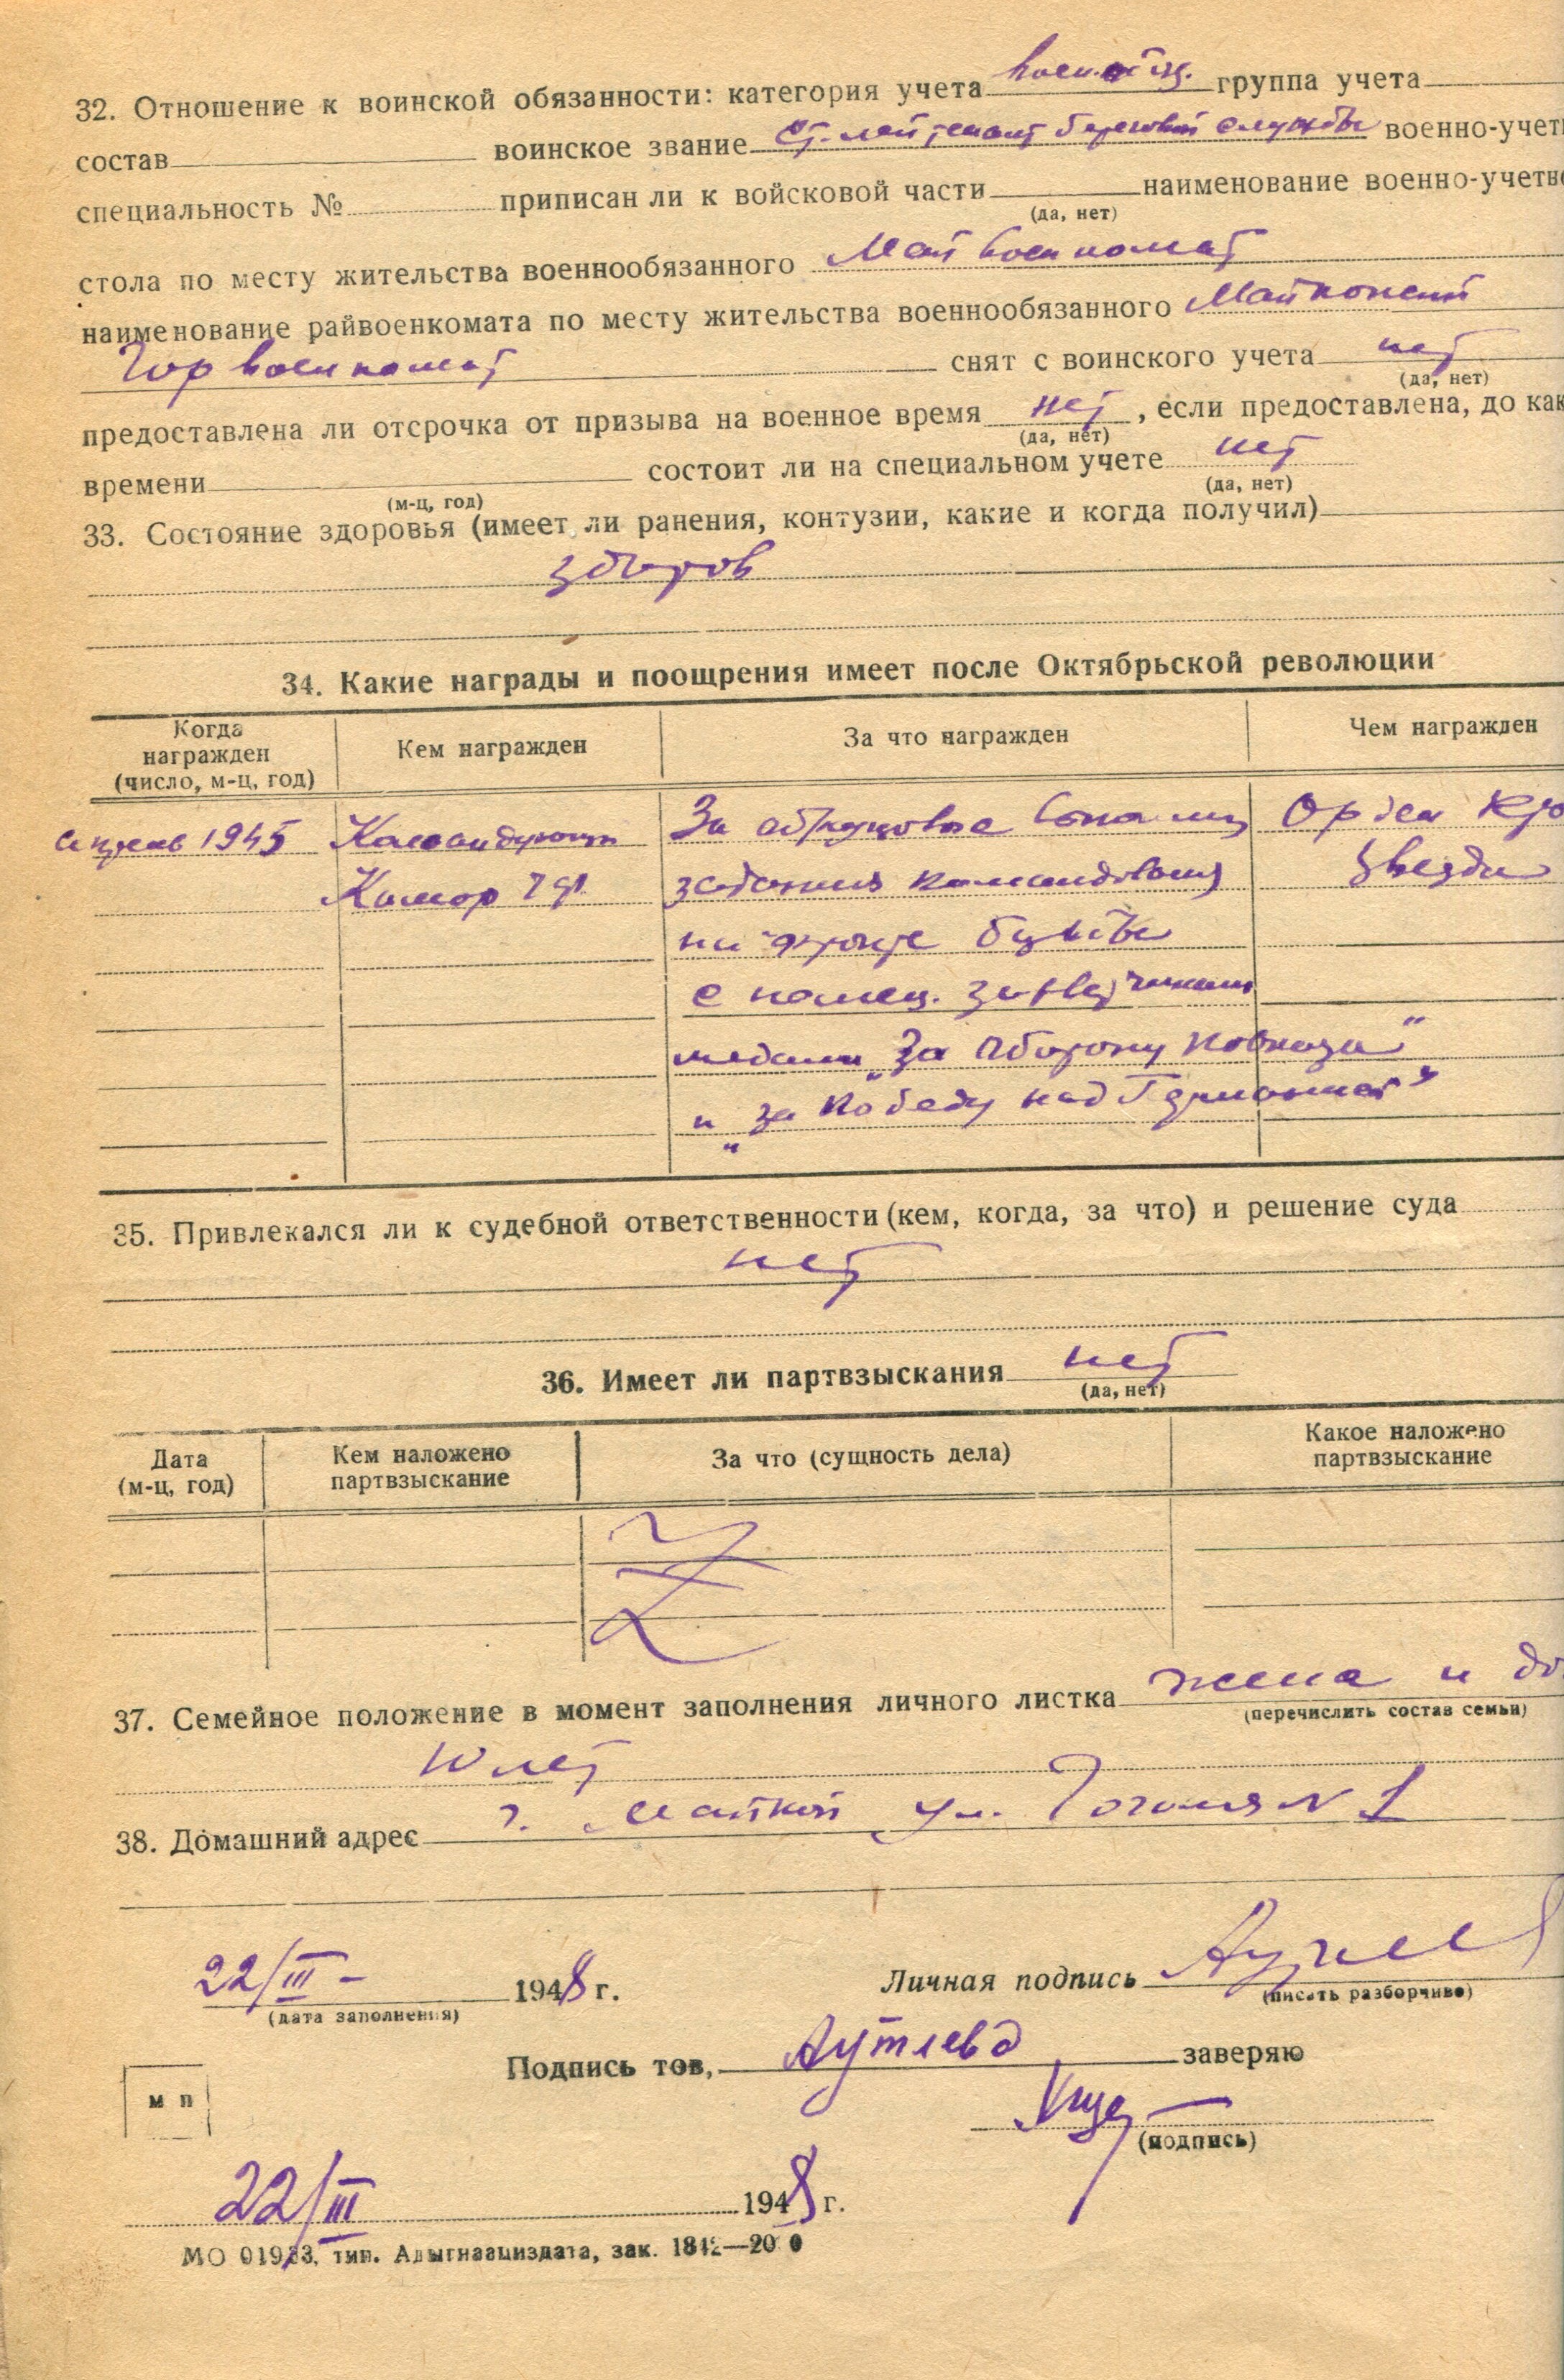 32. Отношение к воинской обязанности: категория учета группа учета
состав воинское звание Ст. лейтенант береговой службы военно-учет
специальность № приписан ли к войсковой части наименование военно-учетн
(да, нет)
стола по месту жительства военнообязанного Май военкомат
наименование райвоенкомата по месту жительства военнообязанного Майкопский
Горвоенкомат снят с воинского учета нет
(да, нет)
предоставлена ли отсрочка от призыва на военное время нет, если предоставлена, до как
(да, нет)
времени состоит ли на специальном учете нет
(м-ц, год) (да, нет)
33. Состояние здоровья (имеет ли ранения, контузии, какие и когда получил)
здоров
34. Какие награды и поощрения имеет после Октябрьской революции
Когда награжден (число, м-ц, год) Кем награжден За что награжден Чем награжден
апрель 1945 За образцовое Орден
задания командования Звезда
на фронте борьбы
с немец. захватчиками
медали „За оборону Кавказа“
и „за победу над Германией“
35. Привлекался ли к судебной ответственности (кем, когда, за что) и решение суда
нет
36. Имеет ли партвзыскания нет
(да, нет)
Дата (м-ц, год) Кем наложено партвзыскание За что (сущность дела) Какое наложено партвзыскание
37. Семейное положение в момент заполнения личного листка жена и до
(перечислить состав семьи)
10 лет
38. Домашний адрес г. Майкоп ул. Гоголя N 1
22/III - 1948 г. Личная подпись
(дата заполнения) (писать разборчиво)
Подпись тов, Аутлева заверяю
м п
(подпись)
22/III 1948 г.
МО 01933, тип. Адыгнациздата, зак. 1842—20